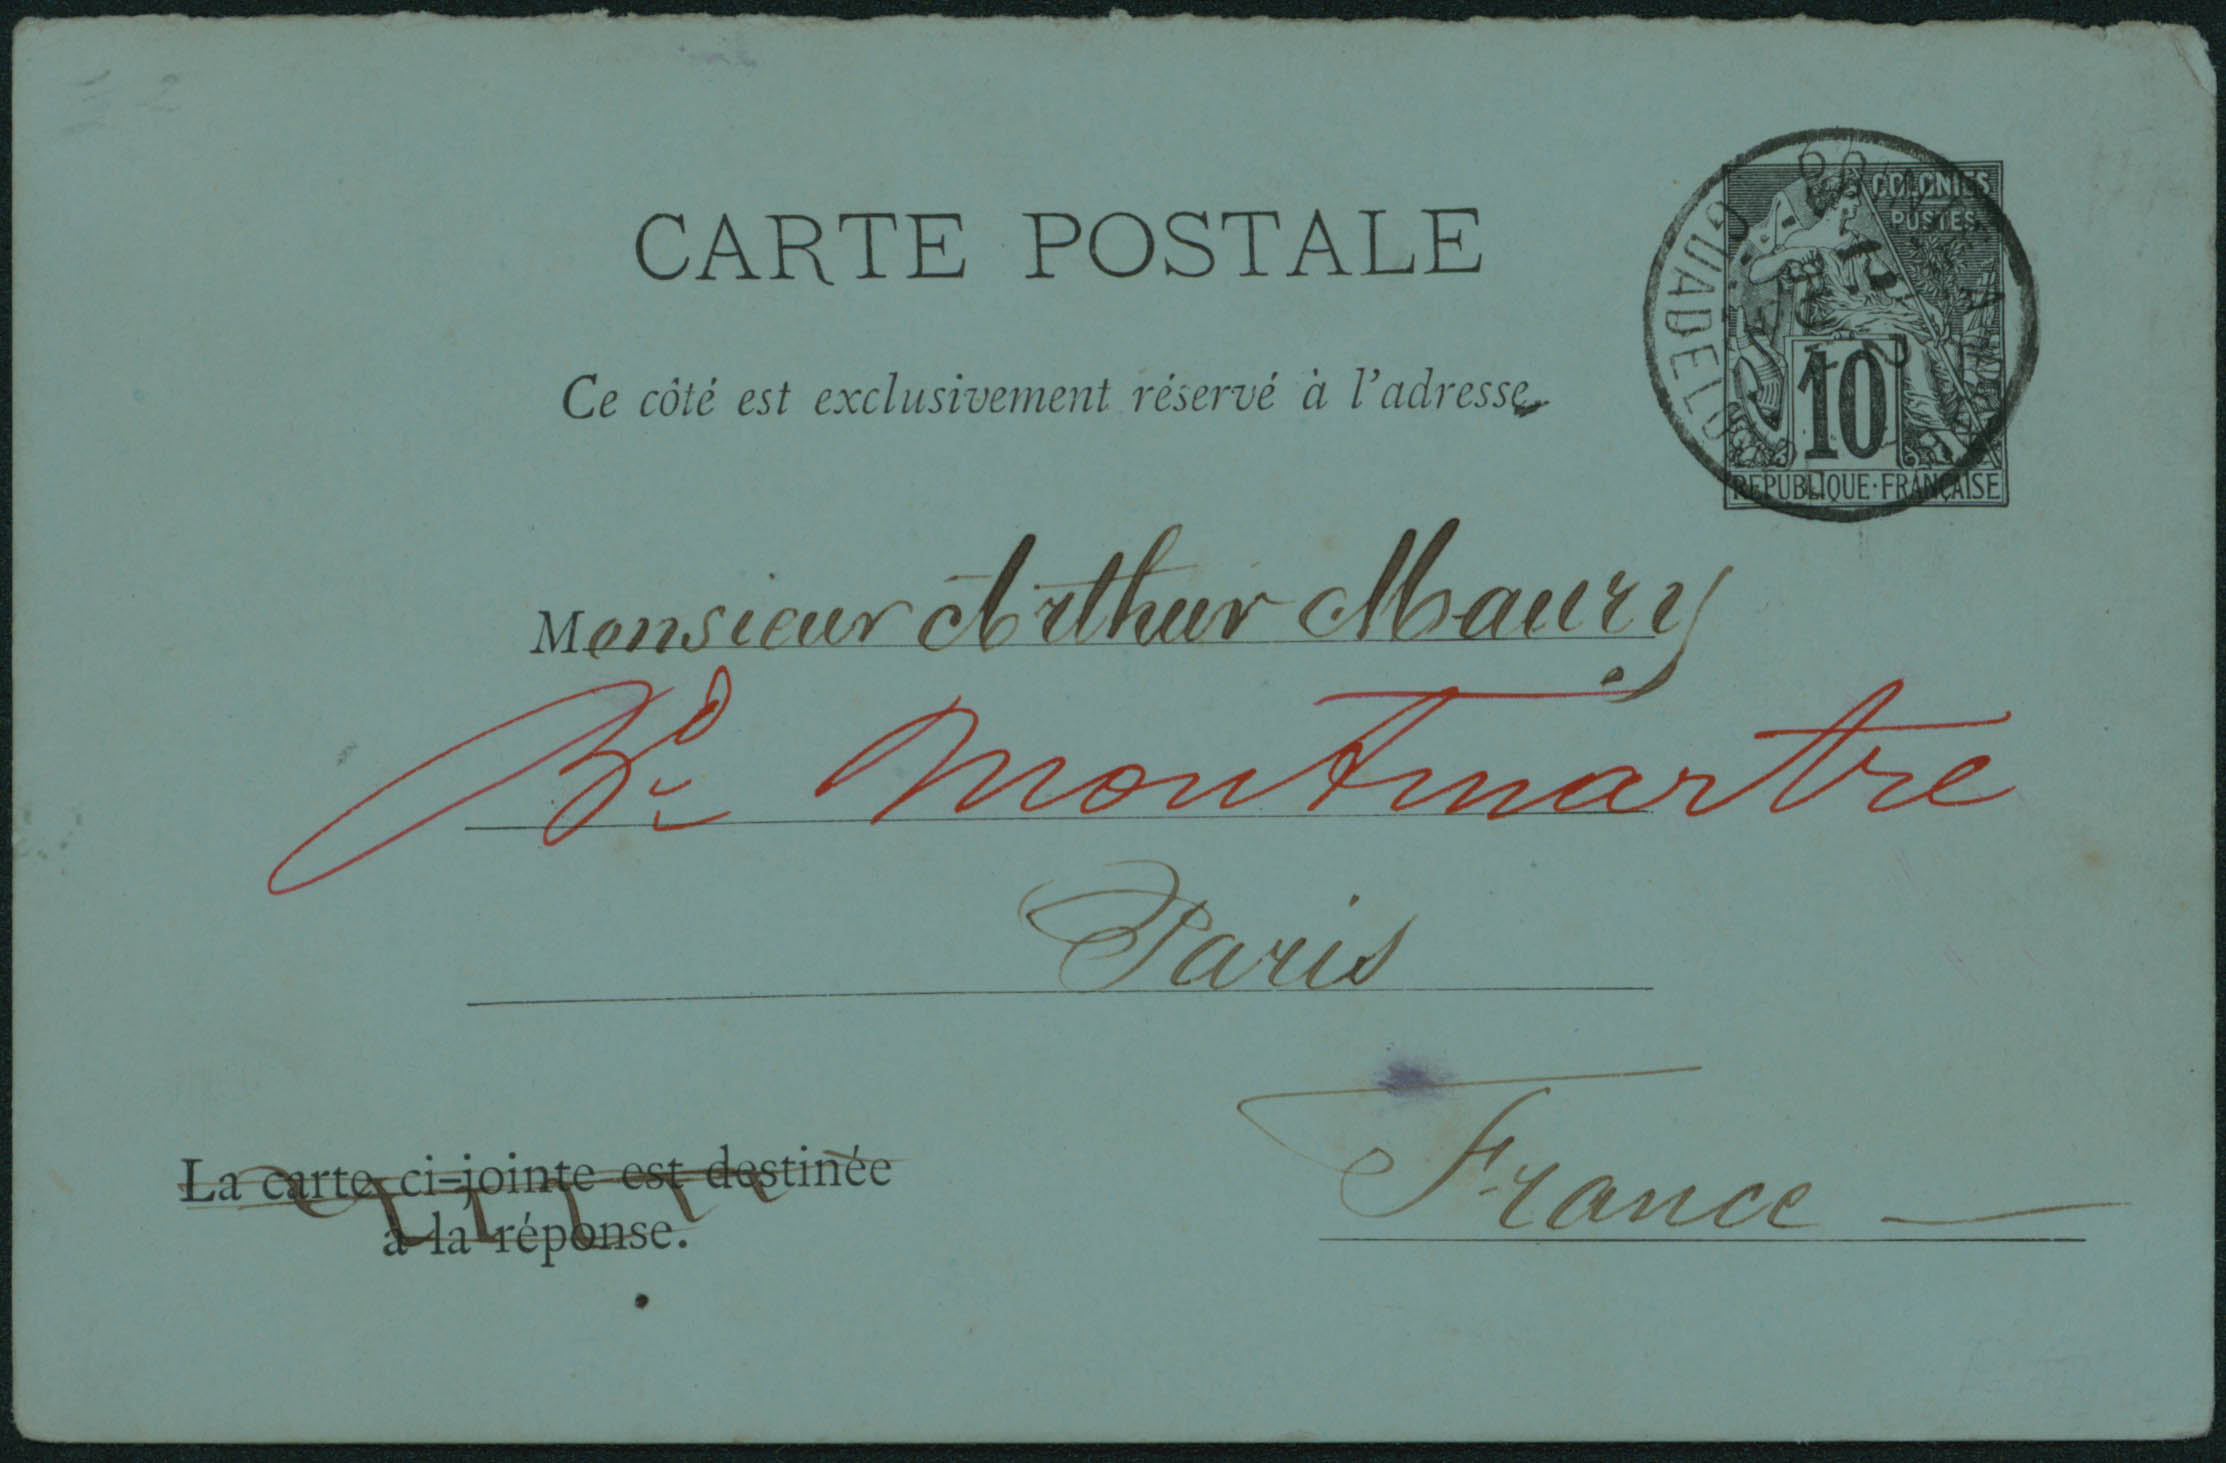 CARTE POSTALE
COLONIES
POSTES
10
REPUBLIQUE·FRANÇAISE
GUADELOUPE
Ce côté est exclusivement réservé à l'adresse.
Monsieur Arthur Maury
Bd Montmartre
Paris
France
La carte ci-jointe est destinée
à la réponse.